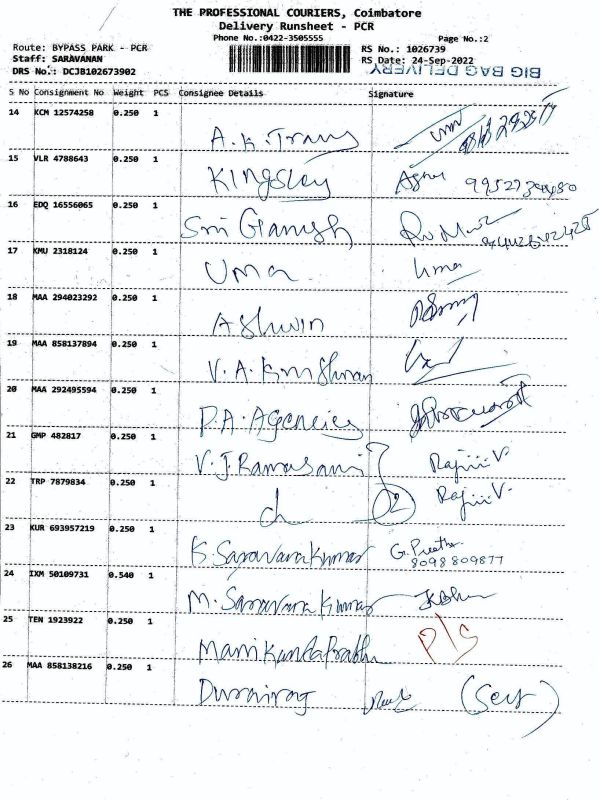 THE PROFESSIONAL COURIERS, Coimbatore
Delivery Runsheet - PCR
Phone No.:0422-3505555
Page No.:2
Route: BYPASS PARK - PCR
RS No.: 1026739
Staff: SARAVANAN
RS Date: 24-Sep-2022
DRS No.: DCJB102673902
BIG BAG DELIVERY
S No Consignment No Weight PCS Consignee Details Signature
14 KCM 12574258 0.250 1
A.K.Trans
15 VLR 4788643 0.250 1
Kingsley
16 EDQ 16556065 0.250 1
Sri Ganesh
17 KMU 2318124 0.250 1
Uma Uma
18 MAA 294023292 0.250 1
Ashwin
19 MAA 858137894 0.250 1
V.A.Krishnan
20 MAA 292495594 0.250 1
P.A.Agencies
21 GMP 482817 0.250 1
V.J.Ramasami Rajiii V.
22 TRP 7879834 0.250 1
02 Rajiii V.
23 KUR 693957219 0.250 1
K.Saravanakumar G. Preetha
8098809877
24 IXM 50109731 0.540 1
M.Saravanakumar
25 TEN 1923922 0.250 1
ManikandaPrabhu P/S
26 MAA 858138216 0.250 1
Durairaj (Self)